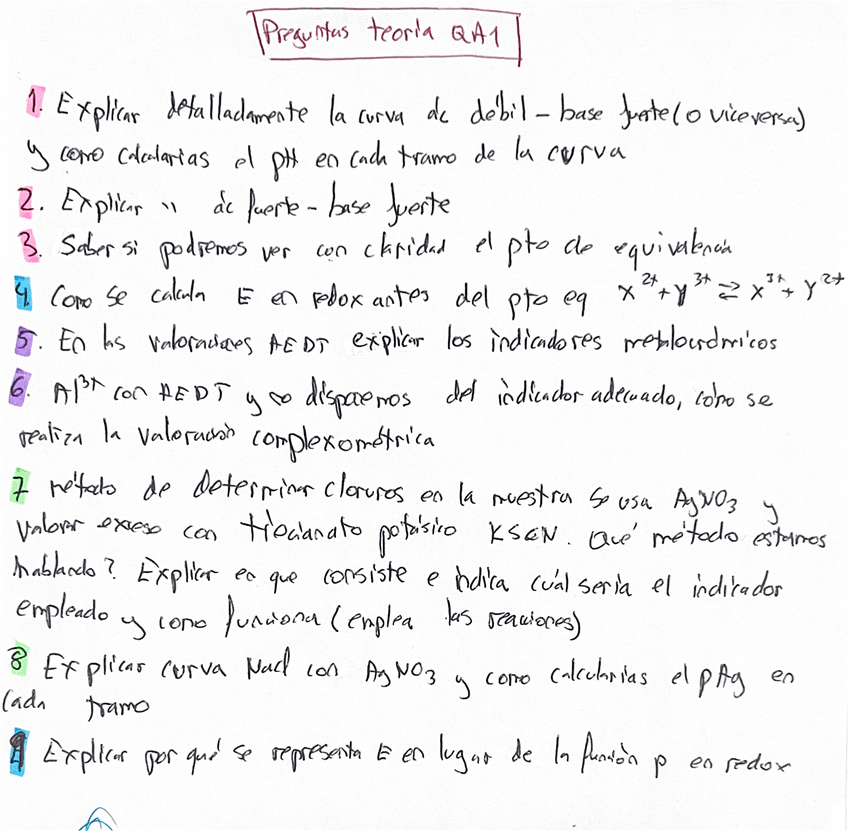 Preguntas teoría QA1
1. Explicar detalladamente la curva ác débil - base fuerte (o viceversa)
y como calcularias el pH en cada tramo de la curva
2. Explicar " ác fuerte - base fuerte
3. Saber si podremos ver con claridad el pto de equivalencia
4 Como se calcula E en redox antes del pto eq X²⁺ + Y³⁺ ⇄ X³⁺ + Y²⁺
5. En las valoraciones AEDT explicar los indicadores metalocrómicos
6. Al³⁺ con AEDT y no disponemos del indicador adecuado, como se
realiza la valoración complexométrica
7 método de determinar cloruros en la muestra se usa AgNO₃ y
valorar exceso con tiocianato potásico KSCN. Qué método estamos
hablando? Explicar en que consiste e indica cuál sería el indicador
empleado y como funciona (emplea las reacciones)
8 Explicar curva NaCl con AgNO₃ y como calcularias el pAg en
cada tramo
9 Explicar por qué se representa E en lugar de la función p en redox